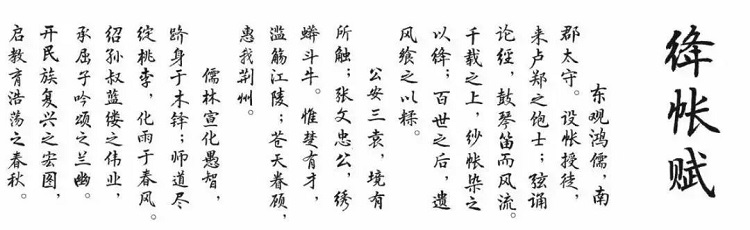 绛帐赋
东观鸿儒，南
郡太守。设帐授徒，
来卢郑之饱士；弦诵
论经，鼓琴笛而风流。
千载之上，纱帐染之
以绛；百世之后，遗
风飨之以糅。
公安三袁，境有
所触；张文忠公，绣
蟒斗牛。惟楚有才，
滥觞江陵；苍天眷顾，
惠我荆州。
儒林宣化愚智，
跻身于木铎；师道尽
绽桃李，化雨于春风。
绍孙叔蓝缕之伟业，
承屈子吟颂之兰幽。
开民族复兴之宏图，
启教育浩荡之春秋。